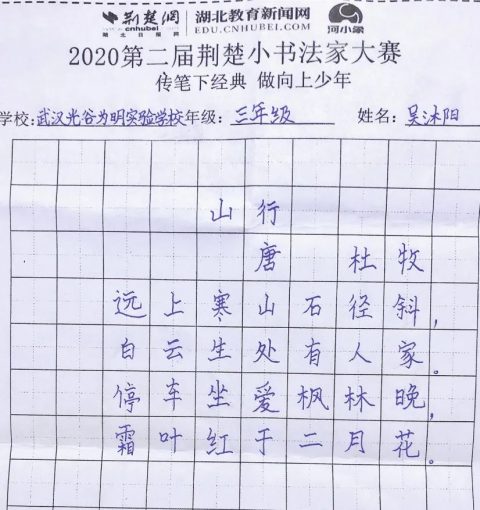 荆楚网 湖北教育新闻网 河小象
www.cnhubei.com EDU.CNHUBEI.COM
湖北日报网
2020第二届荆楚小书法家大赛
传笔下经典 做向上少年
学校:武汉光谷为明实验学校年级:三年级 姓名:吴沐阳
山行
唐 杜牧
远上寒山石径斜,
白云生处有人家。
停车坐爱枫林晚,
霜叶红于二月花。